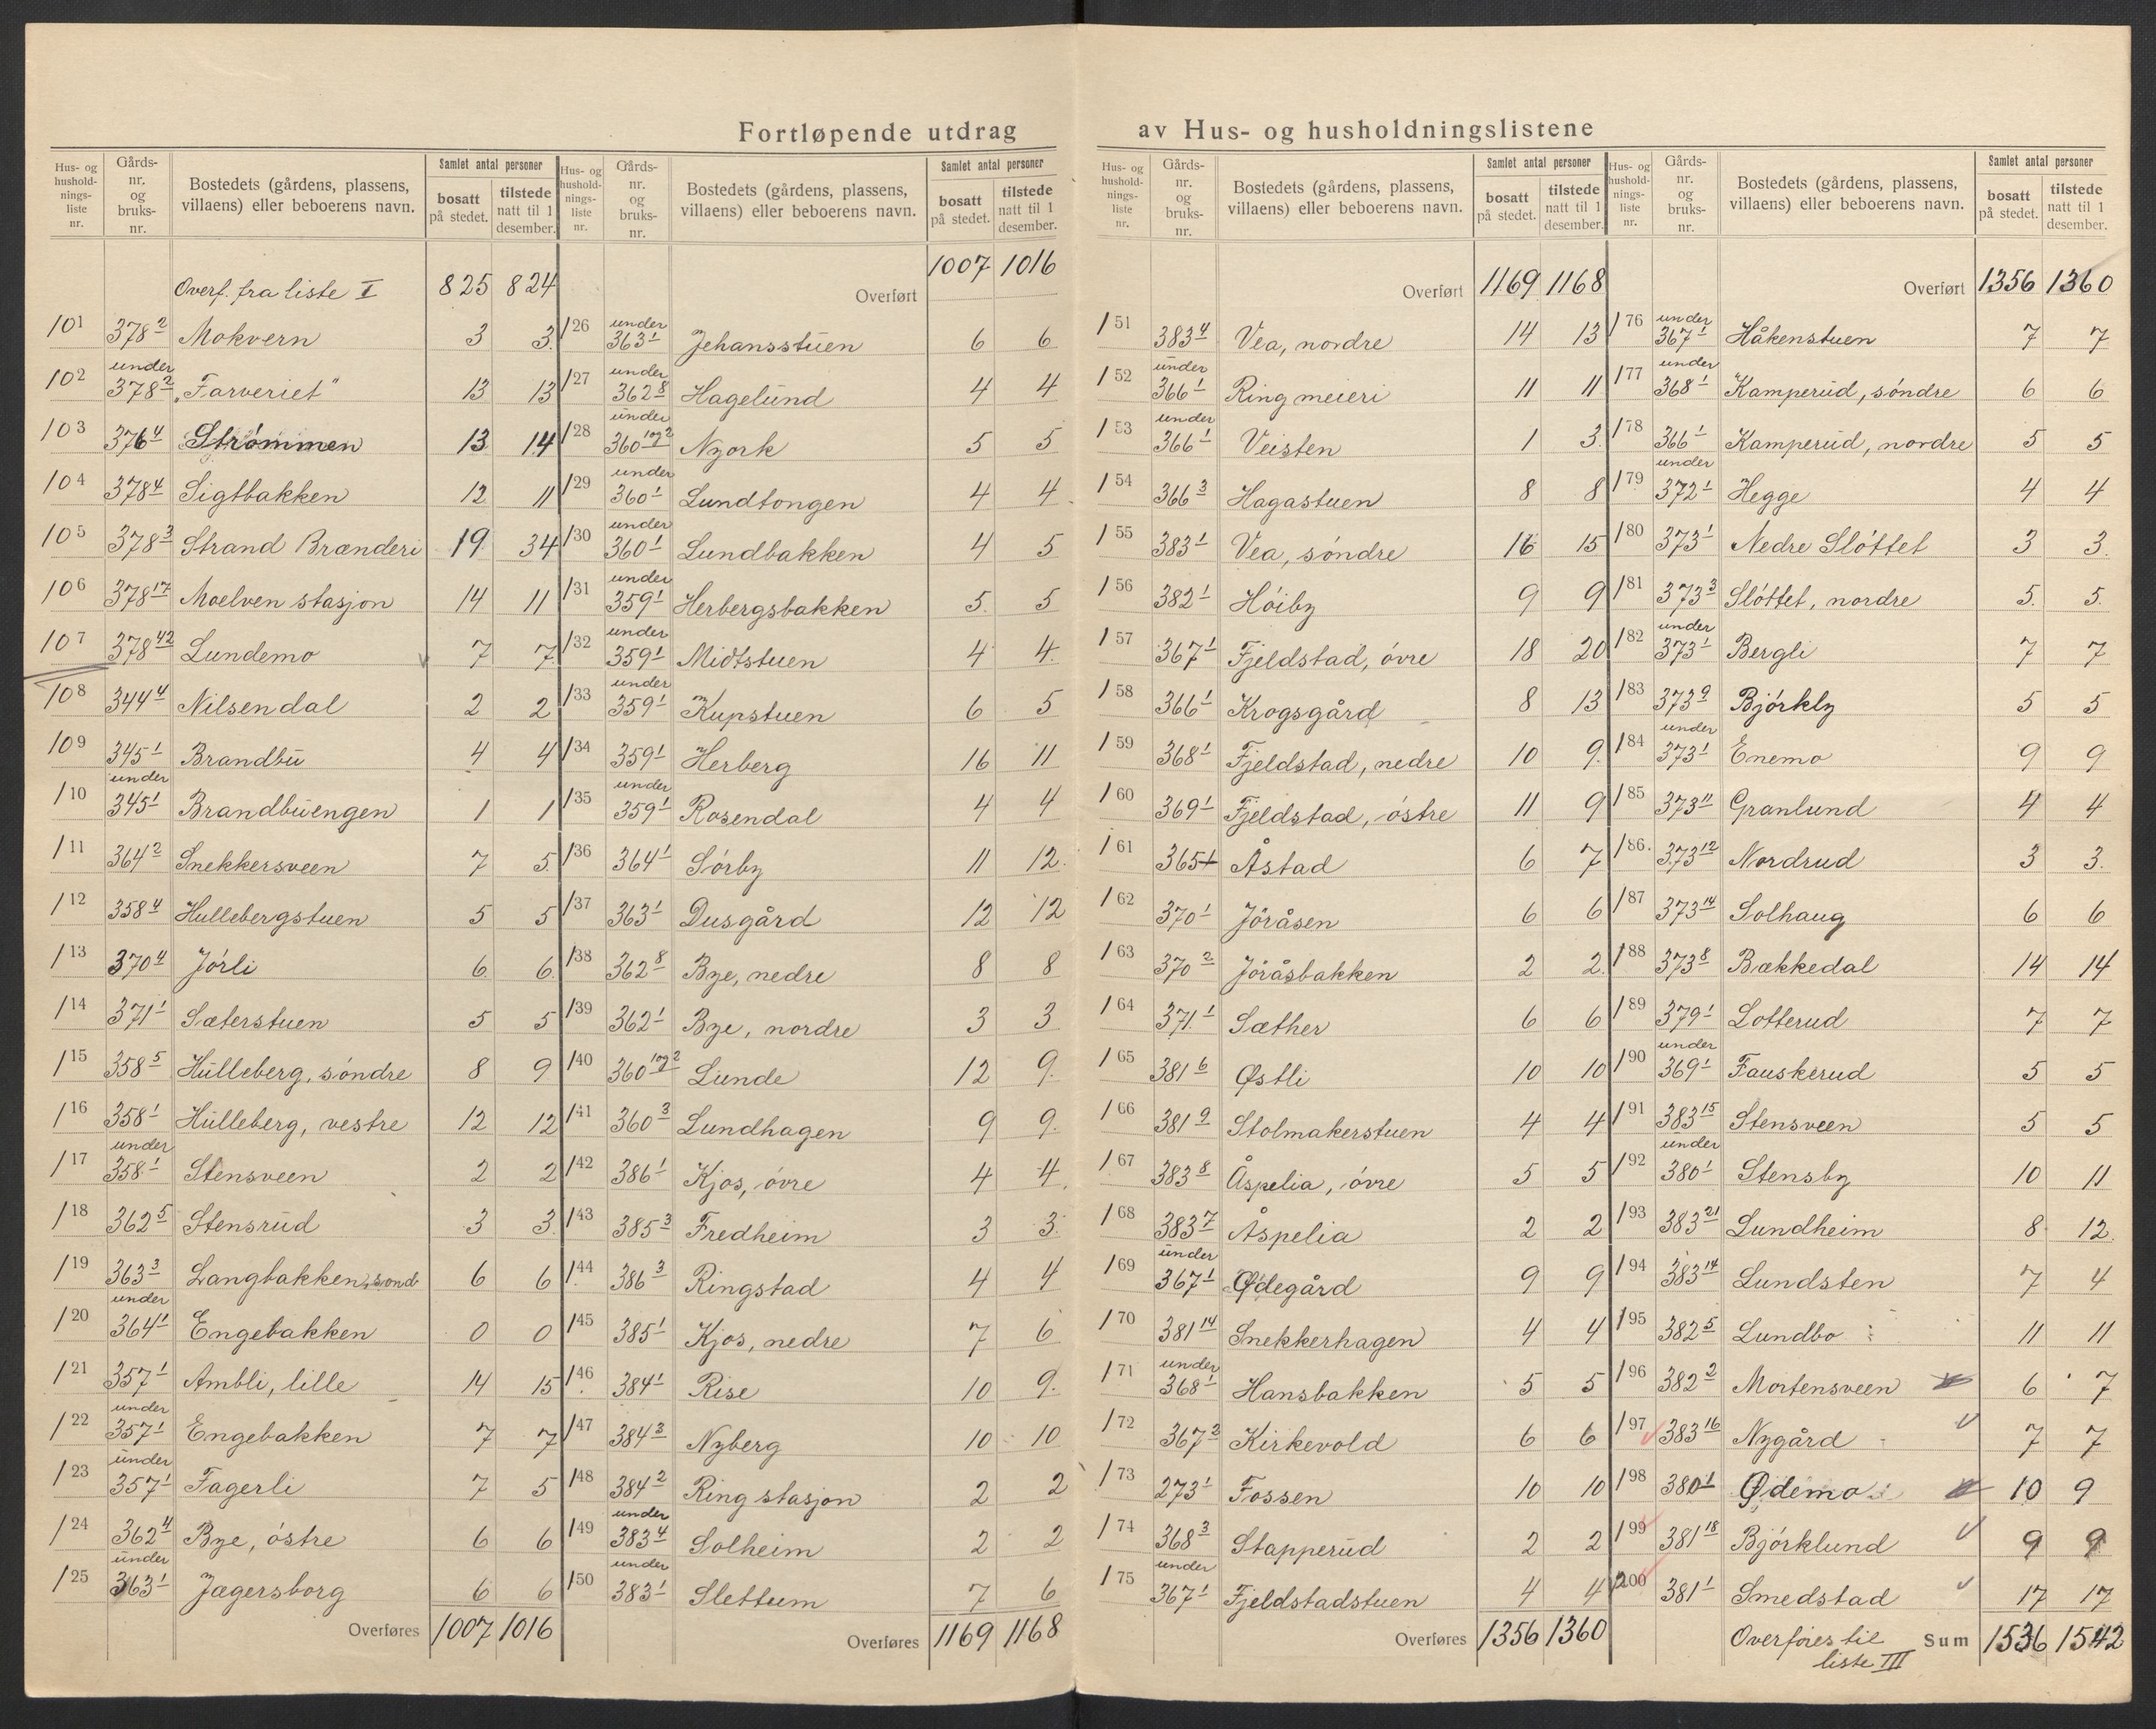 Fortløpende utdrag av Hus- og husholdningslistene
Hus- og husholdningsliste nr. Gårdsnr. og bruksnr. Bostedets (gårdens, plassens, villaens) eller beboerens navn. Samlet antal personer bosatt på stedet. tilstede natt til 1 desember.
Overf. fra liste I 825 824
101 378 2 Mokvern 3 3
102 under 378 2 "Farveriet" 13 13
103 376 4 Strømmen 13 14
104 378 4 Sigtbakken 12 11
105 378 3 Strand Brænderi 19 34
106 378 17 Moelven stasjon 14 11
107 378 42 Lundemo 7 7
108 344 4 Nilsendal 2 2
109 345 1 Brandbu 4 4
110 under 345 1 Brandbuengen 1 1
111 364 2 Snekkersveen 7 5
112 358 4 Hullebergstuen 5 5
113 370 4 Jórli 6 6
114 371 1 Sæterstuen 5 5
115 358 5 Hulleberg, søndre 8 9
116 358 1 Hulleberg, vestre 12 12
117 under 358 1 Stensveen 2 2
118 362 5 Stensrud 3 3
119 363 3 Langbakken, sønd 6 6
120 under 364 1 Engebakken 0 0
121 357 1 Ambli, lille 14 15
122 under 357 1 Engebakken 7 7
123 under 357 1 Fagerli 7 5
124 362 4 Bye, østre 6 6
125 under 363 1 Jægersborg 6 6
Overføres 1007 1016
Hus- og husholdningsliste nr. Gårdsnr. og bruksnr. Bostedets (gårdens, plassens, villaens) eller beboerens navn. Samlet antal personer bosatt på stedet. tilstede natt til 1 desember.
Overført 1007 1016
126 under 363 1 Jehansstuen 6 6
127 under 362 8 Hagelund 4 4
128 under 360 1 og 2 Nyork 5 5
129 under 360 1 Lundtongen 4 4
130 under 360 1 Lundbakken 4 5
131 under 359 1 Herbergsbakken 5 5
132 under 359 1 Midtstuen 4 4
133 under 359 1 Kupstuen 6 5
134 359 1 Herberg 16 11
135 under 359 1 Rosendal 4 4
136 364 1 Sørby 11 12
137 363 1 Dusgård 12 12
138 362 8 Bye, nedre 8 8
139 362 1 Bye, nordre 3 3
140 360 1 og 2 Lunde 12 9
141 360 3 Lundhagen 9 9
142 386 1 Kjos, øvre 4 4
143 385 3 Fredheim 3 3
144 386 3 Ringstad 4 4
145 385 1 Kjos, nedre 7 6
146 384 1 Rise 10 9
147 384 3 Nyberg 10 10
148 384 2 Ring stasjon 2 2
149 under 383 4 Solheim 2 2
150 under 383 1 Slettum 7 6
Overføres 1169 1168
Hus- og husholdningsliste nr. Gårdsnr. og bruksnr. Bostedets (gårdens, plassens, villaens) eller beboerens navn. Samlet antal personer bosatt på stedet. tilstede natt til 1 desember.
Overført 1169 1168
151 383 4 Vea, nordre 14 13
152 under 366 1 Ring meieri 11 11
153 under 366 1 Veisten 1 3
154 366 3 Hagastuen 8 8
155 383 1 Vea, søndre 16 15
156 382 1 Høiby 9 9
157 367 1 Fjeldstad, øvre 18 20
158 366 1 Krogsgård 8 13
159 368 1 Fjeldstad, nedre 10 9
160 369 1 Fjeldstad, østre 11 9
161 365 1 Åstad 6 7
162 370 1 Jøråsen 6 6
163 370 2 Jøråsbakken 2 2
164 371 1 Sæther 6 6
165 381 6 Østli 10 10
166 381 9 Stolmakerstuen 4 4
167 383 8 Åspelia, øvre 5 5
168 383 7 Åspelia 2 2
169 under 367 1 Ødegård 9 9
170 381 14 Snekkerhagen 4 4
171 under 368 1 Hansbakken 5 5
172 367 2 Kirkevold 6 6
173 273 1 Fossen 10 10
174 368 3 Stapperud 2 2
175 under 367 1 Fjeldstadstuen 4 4
Overføres 1356 1360
Hus- og husholdningsliste nr. Gårdsnr. og bruksnr. Bostedets (gårdens, plassens, villaens) eller beboerens navn. Samlet antal personer bosatt på stedet. tilstede natt til 1 desember.
Overført 1356 1360
176 under 367 1 Håkenstuen 7 7
177 under 368 1 Kamperud, søndre 6 6
178 366 1 Kamperud, nordre 5 5
179 under 372 1 Hegge 4 4
180 373 1 Nedre Sløttet 3 3
181 373 3 Sløttet, nordre 5 5
182 under 373 1 Bergli 7 7
183 373 9 Bjørkly 5 5
184 under 373 1 Enemo 9 9
185 373 11 Granlund 4 4
186 373 12 Nordrud 3 3
187 373 14 Solhaug 6 6
188 373 8 Bækkedal 14 14
189 379 1 Lotterud 7 7
190 under 369 1 Fauskerud 5 5
191 383 15 Stensveen 5 5
192 under 380 1 Stensby 10 11
193 383 21 Lundheim 8 12
194 383 14 Lundsten 7 4
195 382 5 Lundbo 11 11
196 382 2 Mortensveen 6 7
197 383 16 Nygård 7 7
198 380 1 Ødemo 10 9
199 381 18 Bjørklund 9 9
200 381 1 Smedstad 17 17
Overføres til liste III Sum 1536 1542